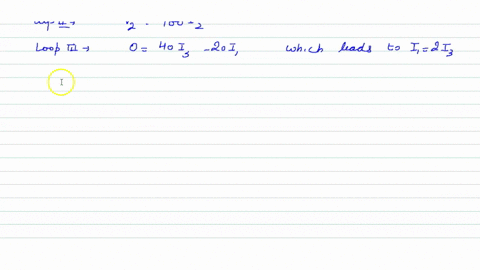 Loop II → V₂ = 100 I₂
Loop III → 0 = 40 I₃ - 20 I₁ which leads to I₁ = 2 I₃